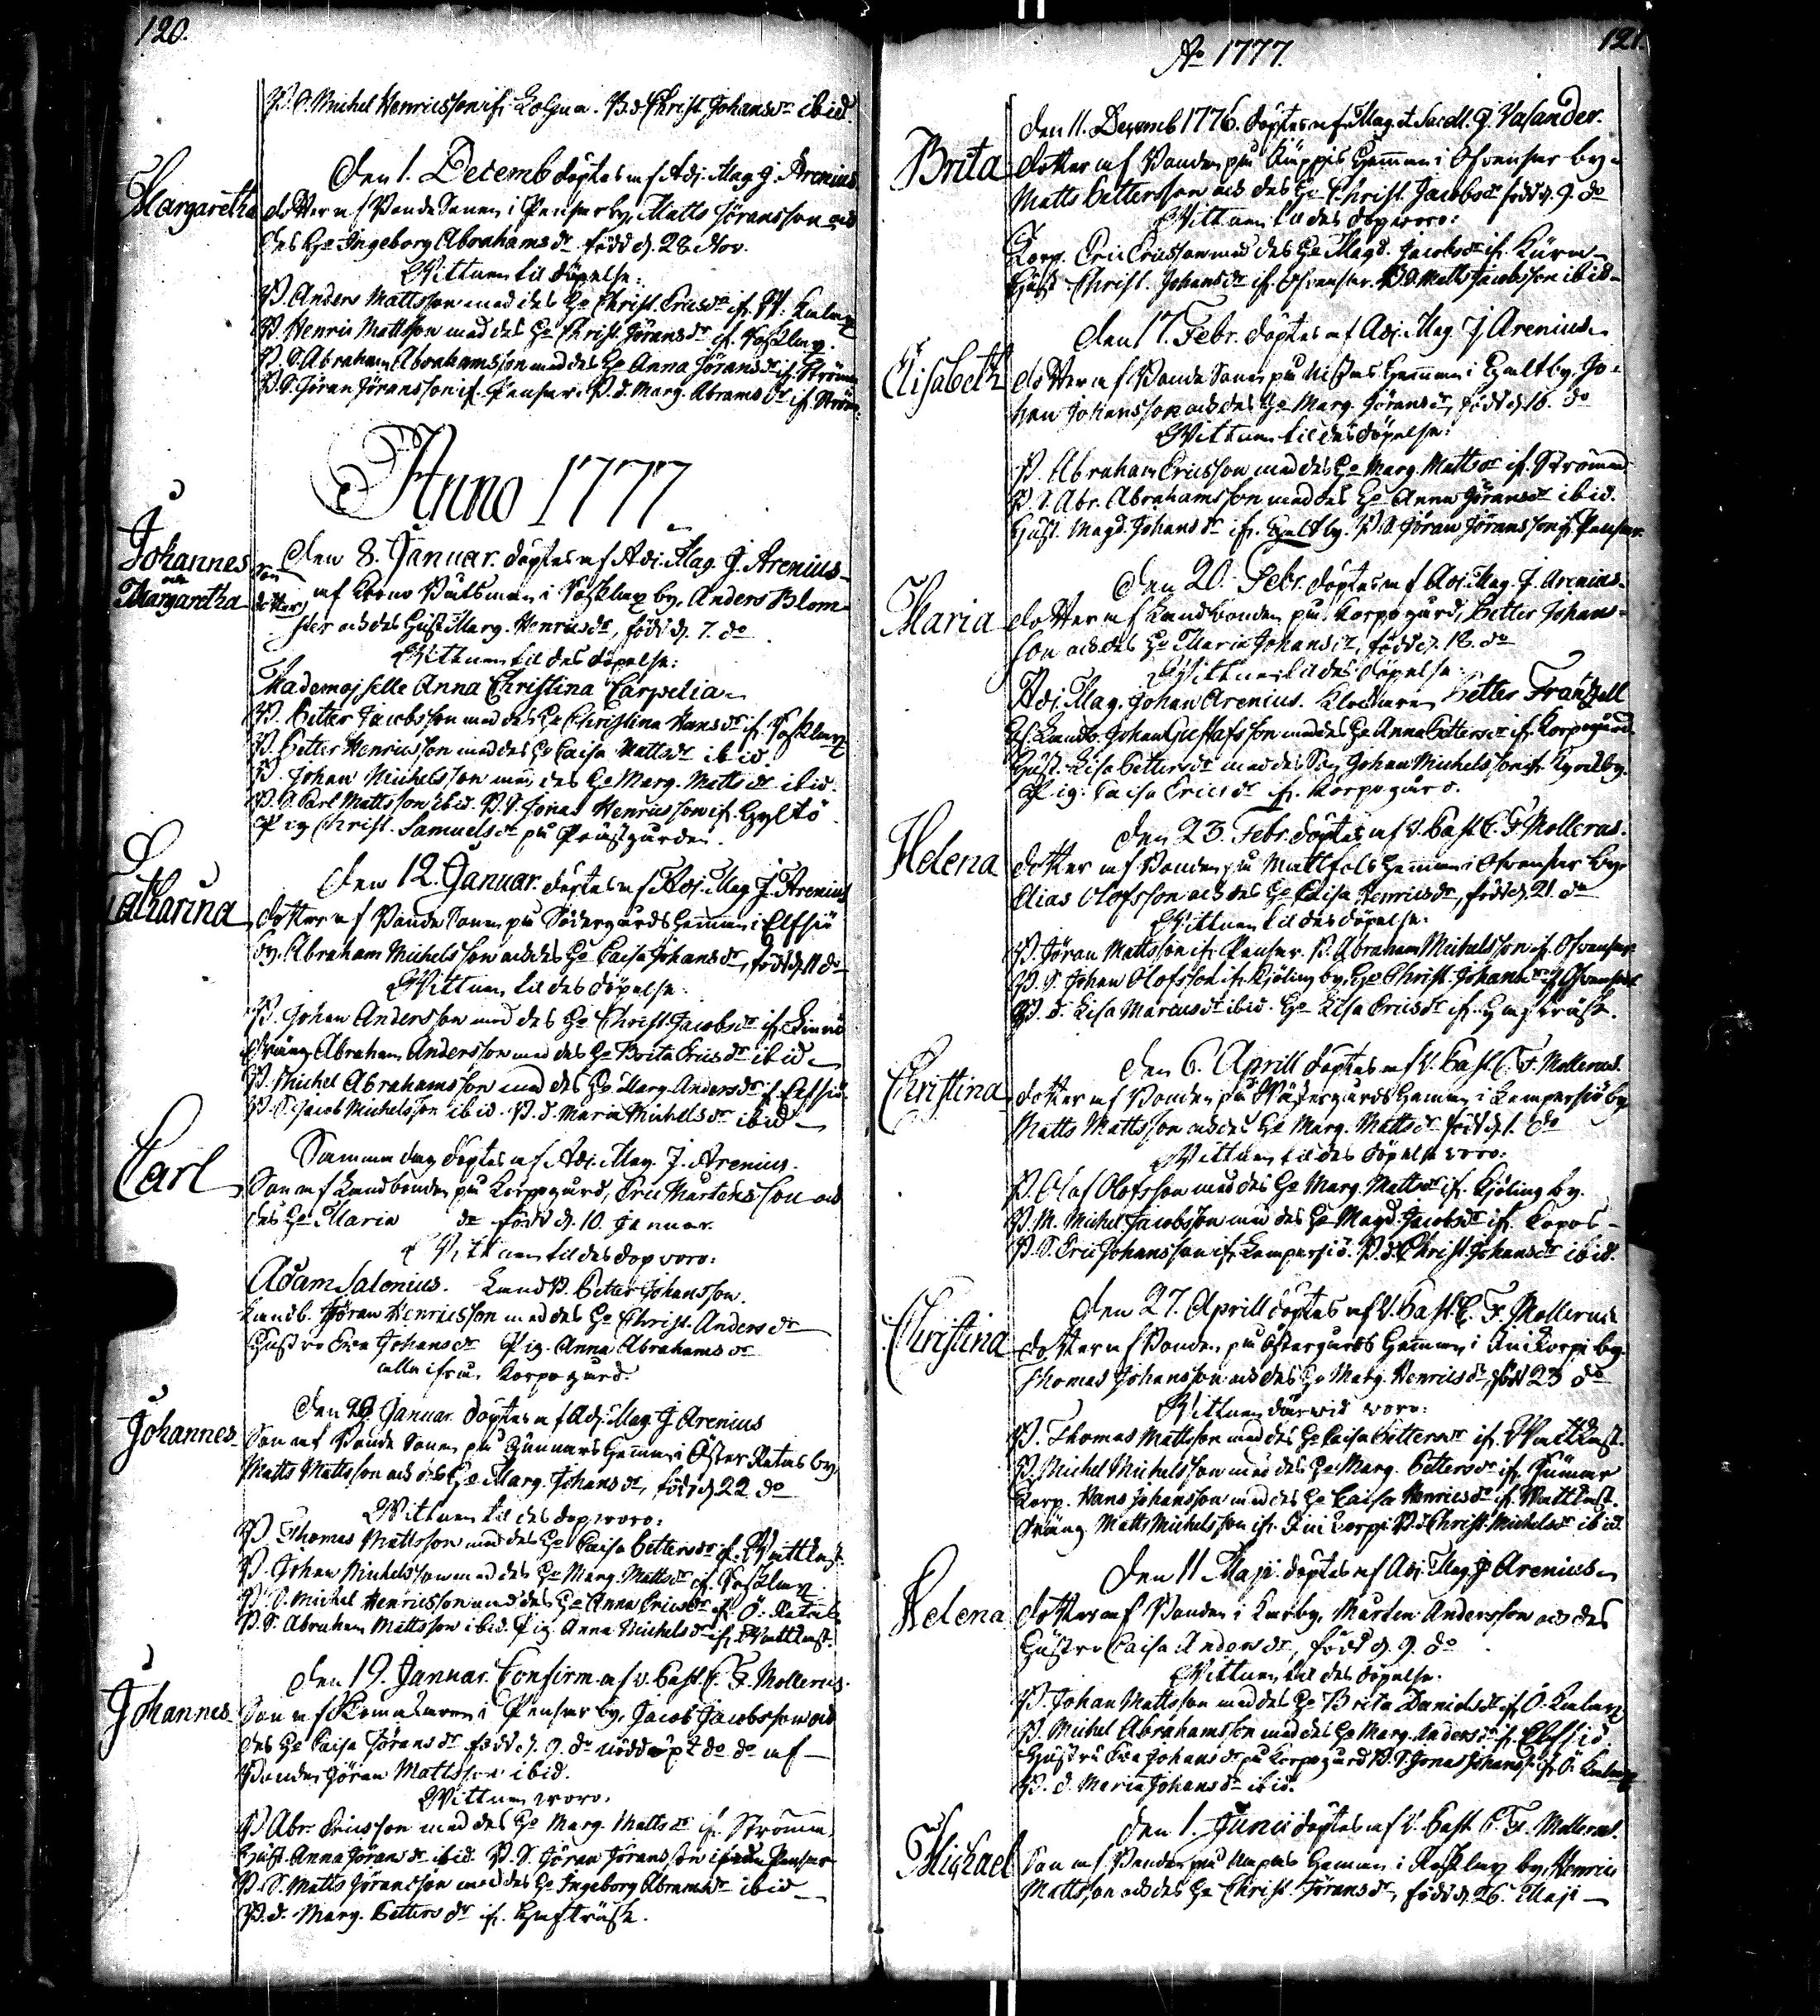 120.
B. S. Michel Henricsson if. B. d. Christ. Johansdr ibid.
Den 1. Decemb döptes af Adj. Mag. J. Arenius
Margaretha dotter af Bonde Sonen i Pensar by, Matts Jöransson och
des Ho Ingeborg Abrahamsdr född d. 28 Nov.
Wittnen til döpelse:
B. Anders Mattsson med des Ho Christ. Ericsdr if. W:
B. Henric Mattsson med des Ho Christ. Jöransdr if.
B. S. Abraham Abrahamsson med des Ho Anna Jöransdr if. Strömma
B. S. Jöran Jöransson if. Pensar. B. d. Marg. Abramsdr if. Ström.
Anno 1777
Johannes och Margaretha
Den 8. Januar. döptes af Adj. Mag. J. Arenius
son dotter af Båtsman i by, Anders Blom-
och des Hust. Marg. Henricsdr, född d. 7. do
Wittnen til des döpelse:
Mademoiselle Anna Christina Carpelia
B. Petter Jacobsson med des Ho Christina Hansdr if.
B. Petter Henricsson med des Ho Caisa Mattsdr ibid.
B. Johan Michelsson med des Ho Marg. Mattsdr ibid.
B. S. Carl Mattsson ibid. B. S. Jonas Henricsson if. Gyltö
Pig. Christ. Samuelsdr på Prästgården.
Den 12. Januar. döptes af Adj. Mag. J. Arenius
Catharina dotter af Bonde Sonen på Södergårds Hemman i Elfsiö
by, Abraham Michelsson och des Ho Caisa Johansdr, född d. 11 do
Wittnen til des döpelse:
B. Johan Andersson med des Ho Christ. Jacobsdr if.
Dräng Abraham Andersson med des Ho Brita Ericsdr ibid.
B. Michel Abrahamsson med des Ho Marg. Andersdr if. Elfsiö.
B. S. Jacob Michelsson ibid. B. d. Maria Michelsdr ibid
Samma dag döptes af Adj. Mag. J. Arenius.
Carl Son af Landbonden på Korpogård, Eric Mårtensson och
des Ho Maria dr född d. 10. Januar.
Wittnen til des dop voro:
Adam Salonius. Land B. Petter Johansson.
Landb. Jöran Henricsson med des Ho Christ. Andersdr
Hustro Eva Johansdr Pig. Anna Abrahamsdr
alla ifrån Korpogård.
Den 26. Januar döptes af Adj. Mag. J Arenius
Johannes Son af Bonde Sonen på Gunnars Hemman i Öster Retais by
Matts Mattsson och des Ho Marg. Johansdr, född d. 22 do
Wittnen til des dop voro:
B. Thomas Mattsson med des Ho Caisa Pettersdr if. Wattkast.
B. Johan Michelsson med des Ho Marg. Mattsdr if.
B. S. Michel Henricsson med des Ho Anna Ericsdr if. Ö. Retais
B. S. Abraham Mattsson ibid. Pig. Anna Michelsdr if. Wattkast.
Den 19. Januar. Confirm. af V. Past. C. F. Mollerus.
Johannes Son af i Pensar by, Jacob Jacobsson och
des Ho Caisa Jöransdr född d. 9. do nöddöpt do do af
Bonden Jöran Mattsson ibid.
Wittnen voro.
B. Abr. Ericsson med des Ho Marg. Mattsdr if. Strömma,
Hust. Anna Jöransdr ibid. B. S. Jöran Jöransson ifrån Pensar
B. S. Matts Jöransson med des Ho Ingeborg Abramsdr ibid
B. d. Marg. Pettersdr if.
121.
Ao 1777.
Den 11. Decemb 1776. döptes af Mag. et Sacell. G. Vasander.
Brita dotter af Bonden på Hemman i Ofvensar by
Matts Pettersson och des Ho Christ. Jacobsdr född d. 9. do
Wittnen til des dop voro:
Korp. Eric Ericsson med des Ho Magd. Jacobsdr if.
Hust Christ. Johansdr if. Ofvensar. B. S. Matts Jacobsson ibid
Den 17. Febr. döptes af Adj. Mag. J Arenius
Elisabeth dotter af Bonde Sonen på Hemman i Galtby, Jo-
han Johansson och des Ho Marg. Jöransdr, född d. 16. do
Wittnen til des döpelse:
B. Abraham Ericsson med des Ho Marg. Mattsdr if. Strömma
B. S. Abr. Abrahamsson med des Ho Anna Jöransdr ibid.
Hust. Magd. Johansdr if. Galtby. B. S. Jöran Jöransson if. Pensar.
Den 20. Febr. döptes af Adj. Mag. J. Arenius.
Maria dotter af Landbonden på Korpogård, Petter Johans-
son och des Ho Maria Johansdr, född d. 18. do
Wittnen til des döpelse.
Adj. Mag. Johan Arenius. Klockaren Petter Frantzell
Landb. Johan Gustafsson med des Ho Anna Pettersdr if. Korpogård
Hust. Lisa Pettersdr med des Son Johan Michelsson if. Kyrkby.
Pig. Caisa Ericsdr if. Korpogård.
Den 23. Febr. döptes af V. Past C. F. Mollerus.
Helena dotter af Bonden på Hemman i Ofvensar by
Elias Olofsson och des Ho Caisa Henricsdr, född d. 21. do
Wittnen til des döpelse:
B. Jöran Mattsson if. Pensar. B. Abraham Michelsson if. Ofvensar.
B. S. Johan Olofsson if. Kjöling by, Ho Christ. Johansdr if. Ofvensar
B. d. Lisa Marcusdr ibid. Ho Lisa Ericsdr if.
Den 6. Aprill döptes af V. Past. C. F. Mollerus.
Christina dotter af Bonden på Wästergårds Hemman i Lempersiö by
Matts Mattsson och des Ho Marg. Mattsdr född d. 1. do
Wittnen til des döpelse voro:
B. Olof Olofsson med des Ho Marg. Mattsdr if. Kjöling by.
B. M. Michel Jacobsson med des Ho Magd. Jacobsdr if.
B. S. Eric Johansson if. Lempersiö. B. d. Christ. Johansdr ibid.
Den 27. Aprill döptes af V. Past. C. F. Mollerus
Christina dotter af Bonden på Östergårds Hemman i Finkorpi by
Thomas Johansson och des Ho Marg. Henricsdr, född 23 do
Wittnen därwid voro:
B. Thomas Mattsson med des Ho Caisa Pettersdr if. Wattkast.
B. Michel Michelsson med des Ho Marg. Pettersdr if.
Korp. Hans Johansson med des Ho Caisa Henricsdr if. Wattkast.
Dräng Matts Michelsson if. Finkorpi B. d. Christ. Michelsdr ibid.
Den 11 Maji döptes af Adj. Mag. J Arenius
Helena dotter af Bonden i by, Mårten Andersson och des
Hustro Caisa Andersdr, född d. 9. do
Wittnen til des döpelse.
B. Johan Mattsson med des Ho Brita Danielsdr if. Ö.
B. Michel Abrahamsson med des Ho Marg. Andersdr if. Elfsiö.
Hustru Eva Johansdr på Korpogård B. S. Jonas Johansson if. Ö.
B. d. Maria Johansdr ibid.
Den 1. Junii döptes af V. Past C. F. Mollerus.
Michael Son af Bonden på Hemman i by, Henric
Mattsson och des Ho Christ. Jöransdr, född d. 26. Maji